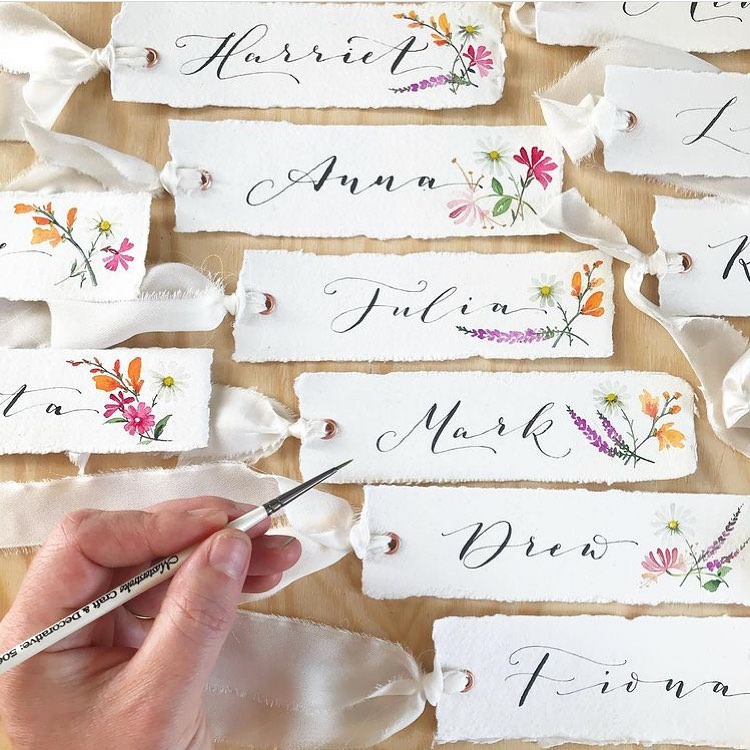 Harriet
Anna
Julia
ta
Mark
Drew
Fiona
Masterstroke Craft & Decorative: 500